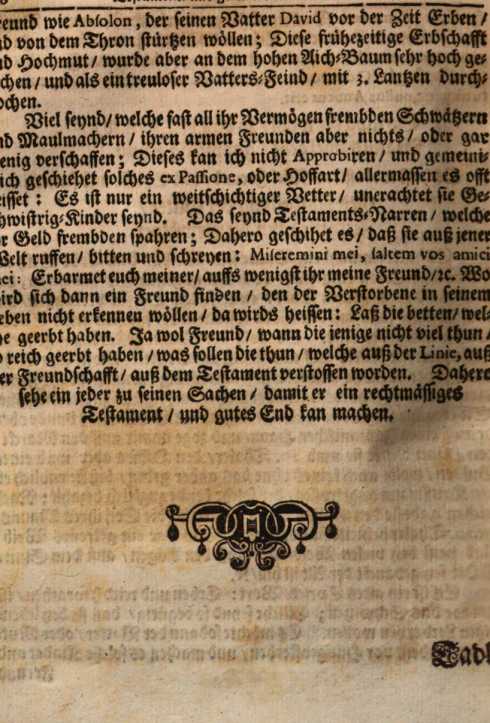 reund wie Absolon, der seinen Vatter David vor der Zeit Erben /
nd von dem Thron stürtzen wöllen; Diese frühezeitige Erbschafft
nd Hochmut / wurde aber an dem hohen Aich-Baum sehr hoch ge-
chen / und als ein treuloser Vatters-Feind / mit 3. Lantzen durch-
ochen.
Viel seynd / welche fast all ihr Vermögen frembden Schwätzern
nd Maulmachern / ihren armen Freunden aber nichts / oder gar
enig verschaffen; Dieses kan ich nicht Approbiren / und gemeini-
ich geschiehet solches ex Passione, oder Hoffart / allermassen es offt
eisset: Es ist nur ein weitschichtiger Vetter / unerachtet sie Ge-
hwistrig-Kinder seynd. Das seynd Testaments-Narren / welche
r Geld frembden spahren; Dahero geschihet es / daß sie auß jener
Welt ruffen / bitten und schreyen: Miseremini mei, saltem vos amici
ei: Erbarmet euch meiner / auffs wenigst ihr meine Freund / ꝛc. Wo
ird sich dann ein Freund finden / den der Verstorbene in seinem
eben nicht erkennen wöllen / da wirds heissen: Laß die betten / wel-
he geerbt haben. Ja wol Freund / wann die jenige nicht viel thun /
o reich geerbt haben / was sollen die thun / welche auß der Linie, auß
er Freundschafft / auß dem Testament verstossen worden. Dahero
sehe ein jeder zu seinen Sachen / damit er ein rechtmässiges
Testament / und gutes End kan machen.
Tadl